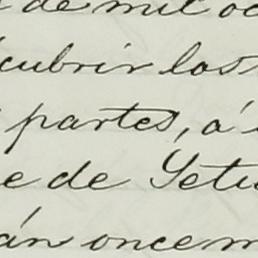 de mil oc
cubrir los
partes, á
e de Setu
án once m